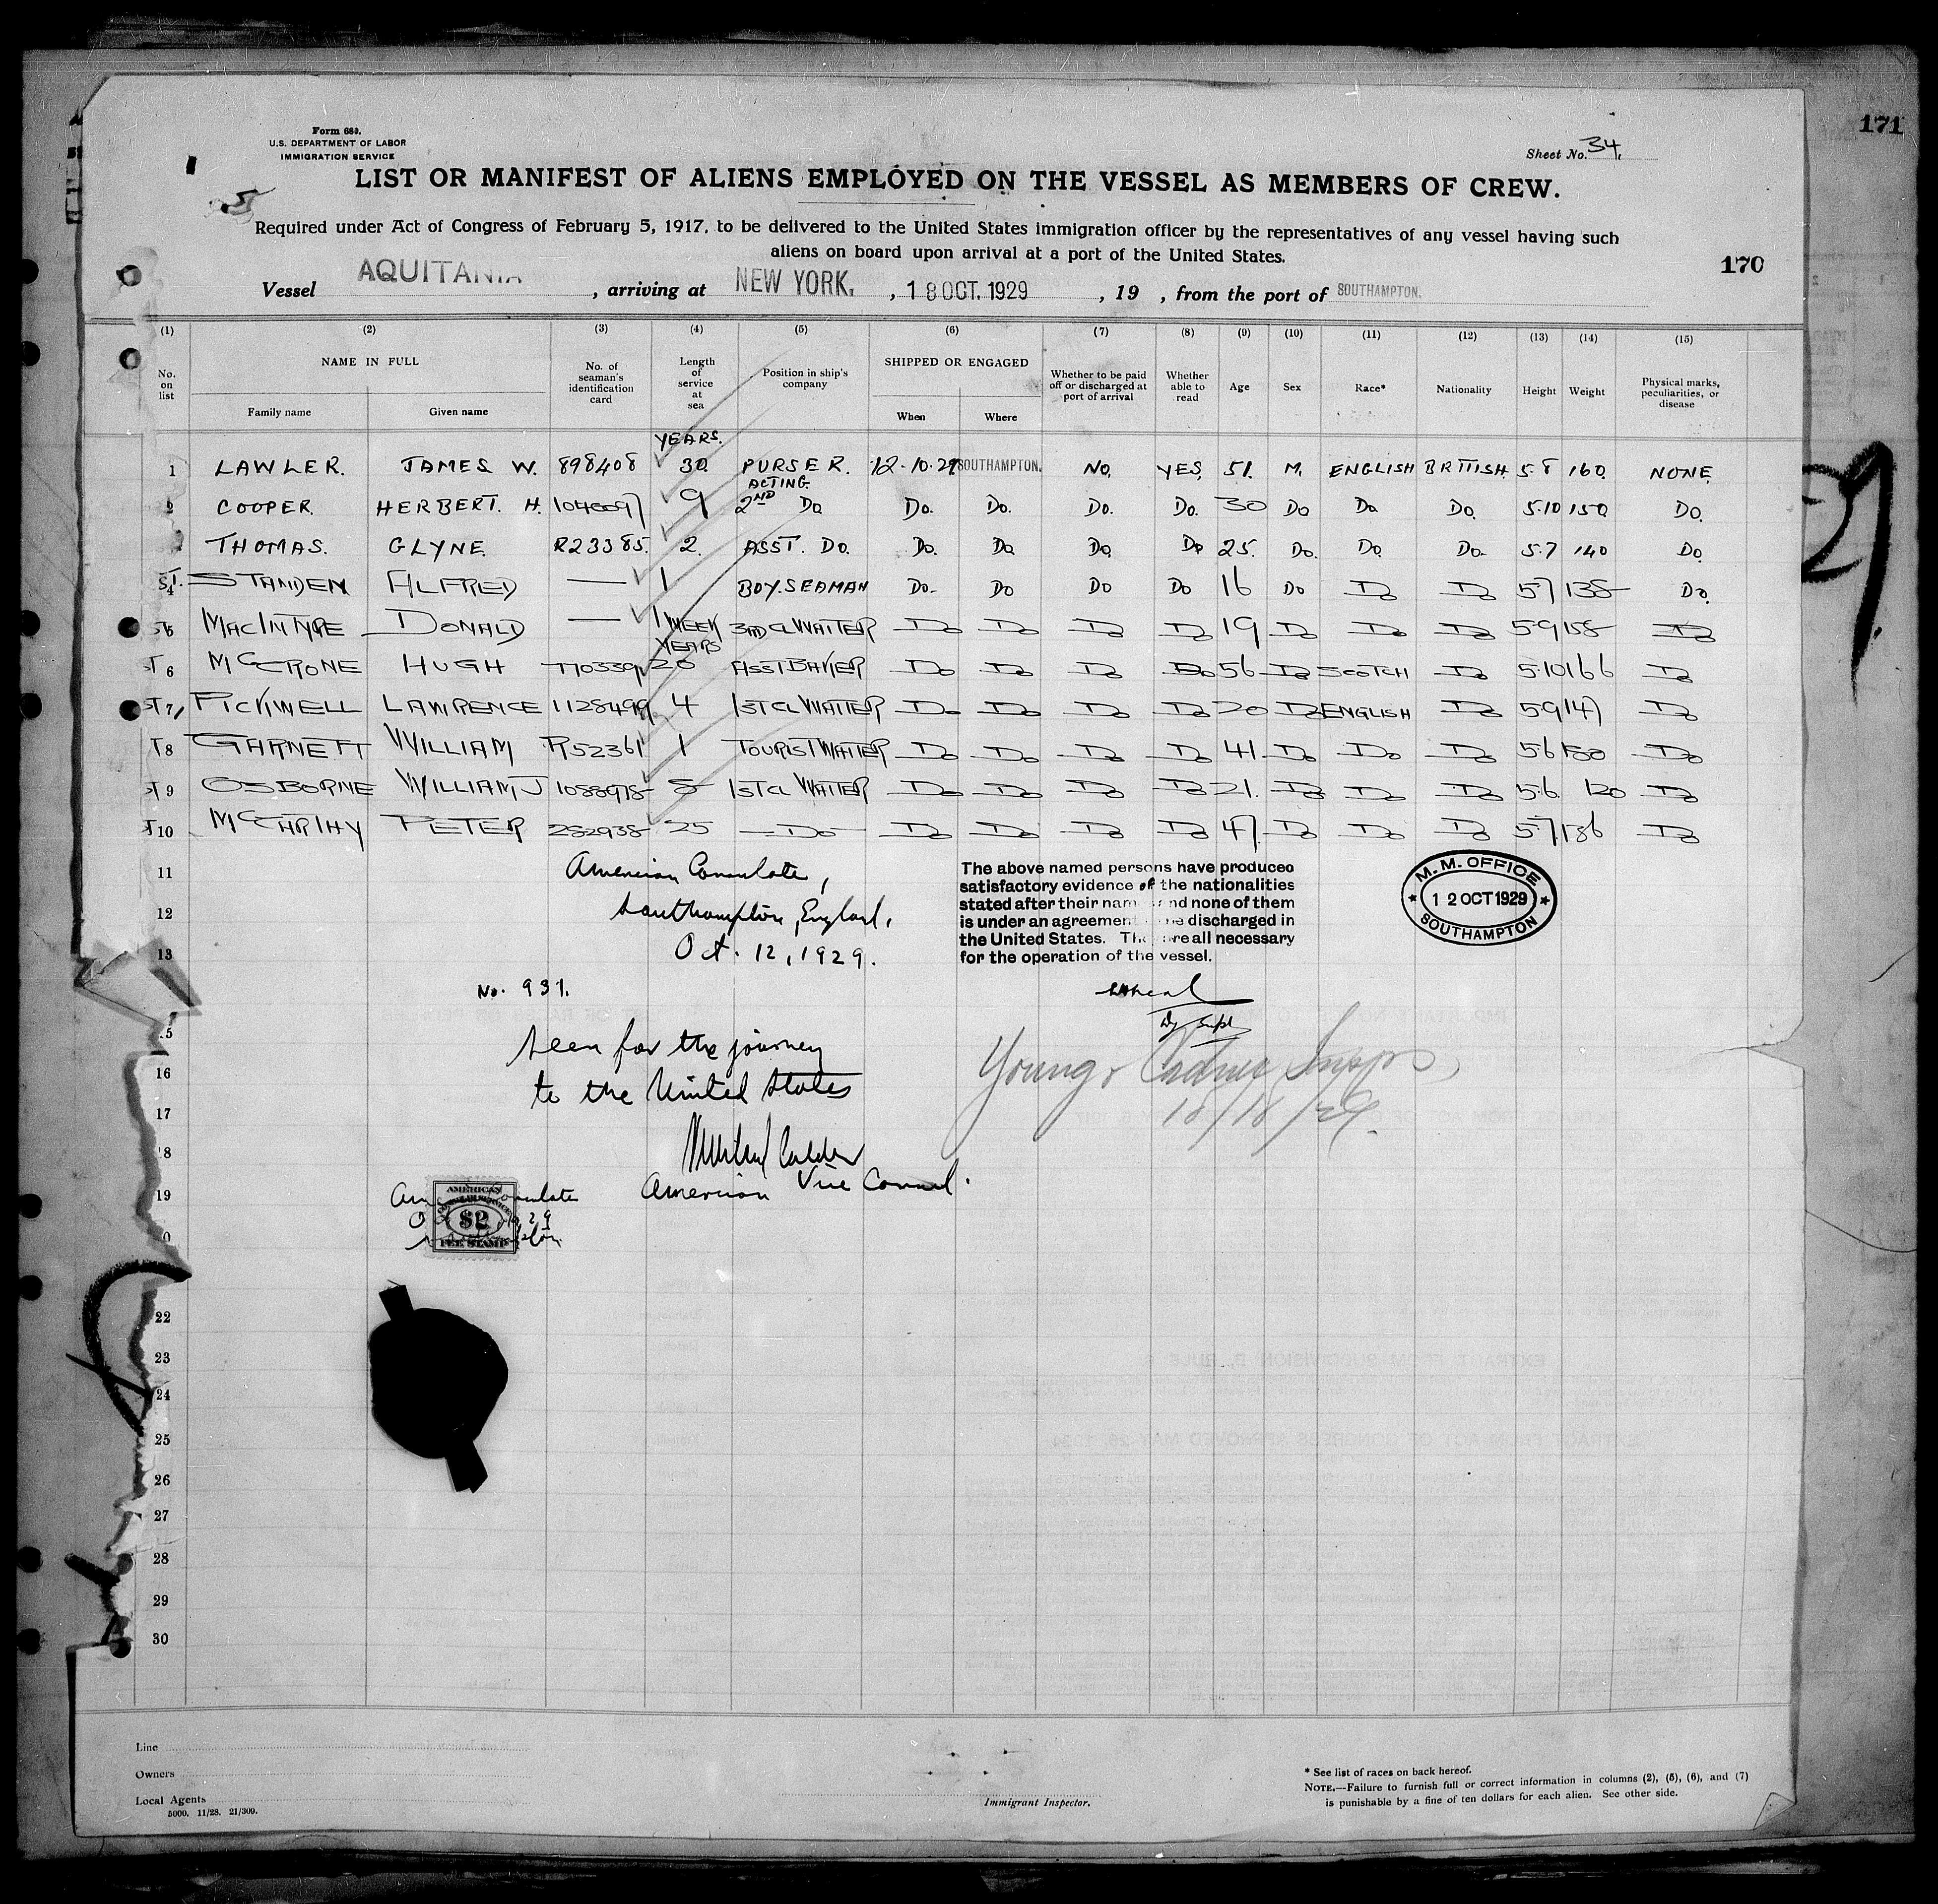 171
Form 680.
U.S. DEPARTMENT OF LABOR
IMMIGRATION SERVICE
Sheet No. 34.
LIST OR MANIFEST OF ALIENS EMPLOYED ON THE VESSEL AS MEMBERS OF CREW.
Required under Act of Congress of February 5, 1917, to be delivered to the United States immigration officer by the representatives of any vessel having such
aliens on board upon arrival at a port of the United States.
170
Vessel AQUITANIA, arriving at NEW YORK, , 18 OCT. 1929 , 19 , from the port of SOUTHAMPTON.
(1) (2) (3) (4) (5) (6) (7) (8) (9) (10) (11) (12) (13) (14) (15)
No. on list NAME IN FULL Family name Given name No. of seaman's identification card Length of service at sea Position in ship's company SHIPPED OR ENGAGED When Where Whether to be paid off or discharged at port of arrival Whether able to read Age Sex Race* Nationality Height Weight Physical marks, peculiarities, or disease
YEARS.
1 LAWLER. JAMES W. 898408 30 PURSER. 12-10-29 SOUTHAMPTON. NO. YES. 51. M. ENGLISH BRITISH 5.8 160. NONE.
2 COOPER. HERBERT. H. 9 ACTING 2ND DO DO. DO. DO. DO. 30 DO DO DO. 5.10 150 DO.
THOMAS. GLYNE. R23385. 2. ASST. DO. DO. DO DO DO 25. DO. DO DO. 5.7 140 DO
ST. 4 STANDEN ALFRED — 1 BOY. SEAMAN DO. DO DO DO 16 DO DO DO 5.7 138 DO.
ST 5 MACINTYRE DONALD — 1 WEEK 3RD CL WAITER DO DO DO DO 19 DO DO DO 5.9 158 DO
YEARS
ST 6 MCCRONE HUGH 770339 20 ASST BAKER DO DO DO DO 56 DO SCOTCH DO 5.10 166 DO
ST 7 PICKWELL LAWRENCE 1128499 4 1ST CL WAITER DO DO DO DO 20 DO ENGLISH DO 5.9 147 DO
ST 8 GARNETT WILLIAM R52361 1 TOURIST WAITER DO DO DO DO 41 DO DO DO 5.6 DO
ST 9 OSBORNE WILLIAM J 1088978 8 1ST CL WAITER DO DO DO DO 21. DO DO DO 5.6. 120 DO
ST 10 PETER 282938 25 — DO — DO DO DO DO 47. DO DO DO 5.7 DO
11
American Consulate,
12
Southampton, England.
13
Oct. 12, 1929.
The above named persons have produced
satisfactory evidence of the nationalities
stated after their nam and none of them
is under an agreement be discharged in
the United States. Th are all necessary
for the operation of the vessel.
M. M. OFFICE
12 OCT 1929
SOUTHAMPTON
No. 931.
Dy Supt
15
Seen for the journey
16
to the United States
Young &
17
10/18/29.
18
Calder
19
American Vice Consul.
AMERICAN
$2
FEE STAMP
22
23
24
25
26
27
28
29
30
Line
Owners
Local Agents
5000. 11/28. 21/309.
Immigrant Inspector.
* See list of races on back hereof.
NOTE.—Failure to furnish full or correct information in columns (2), (5), (6), and (7)
is punishable by a fine of ten dollars for each alien. See other side.